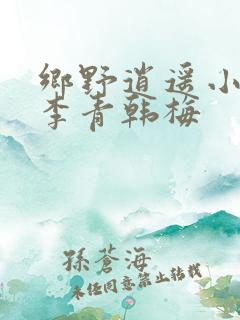 鄉野逍遥小
李青韩梅
孫蒼海
未经同意禁止转载